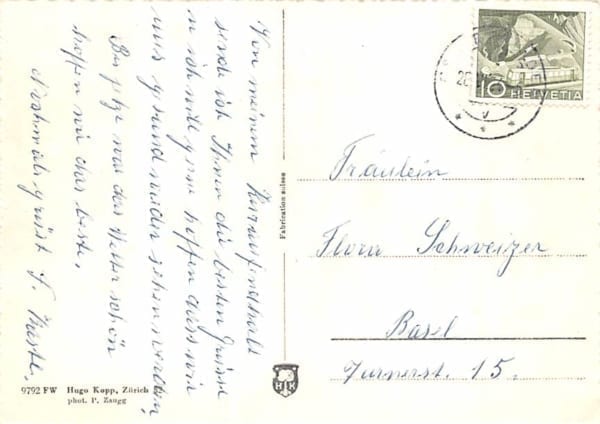 Von meinem Kuraufenthalt
sende ich Ihnen die besten Grüsse
u. ich will gerne hoffen dass wir
uns gesund wieder sehen werden,
Bis jetzt war das Wetter schön
hoffen wir das beste.
Nochmals grüsst F.
Fabrication suisse
10 HELVETIA
Fräulein
Flora Schweizer
Basel
Turnerst. 15.
9792 FW Hugo Kopp, Zürich
phot. P. Zaugg
HK